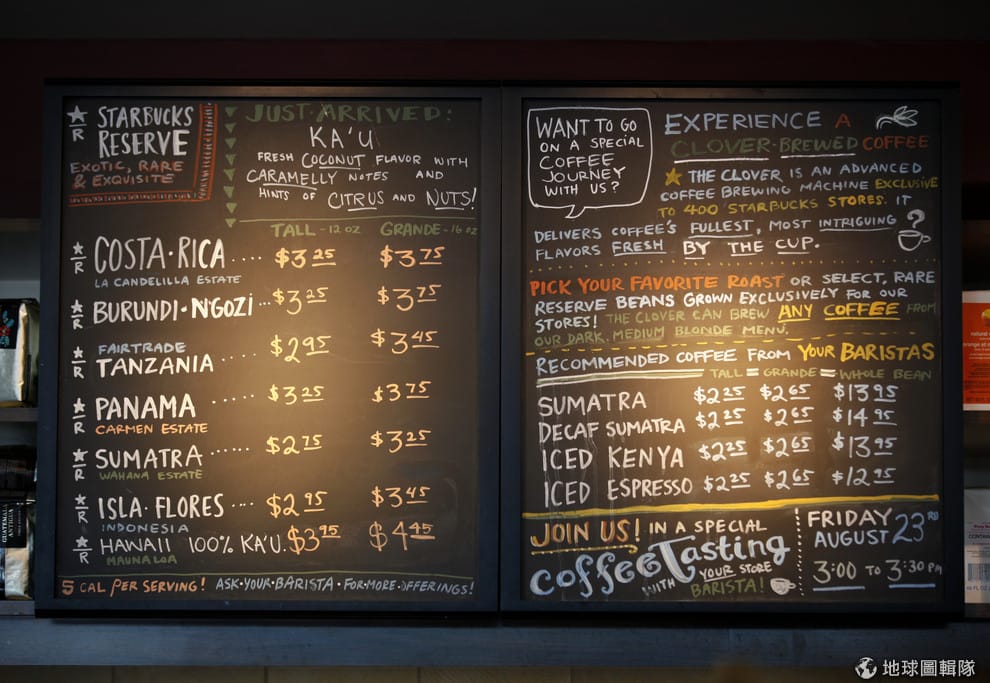 ★ R STARBUCKS RESERVE
EXOTIC, RARE
& EXQUISITE
JUST ARRIVED:
KA'U
FRESH COCONUT FLAVOR WITH
CARAMELLY NOTES AND
HINTS OF CITRUS AND NUTS!
TALL - 12 OZ GRANDE - 16 OZ
★ R COSTA · RICA .... $3.25 $3.75
LA CANDELILLA ESTATE
★ R BURUNDI · N'GOZI ... $3.25 $3.75
FAIRTRADE
★ R TANZANIA ..... $2.95 $3.45
★ R PANAMA ...... $3.25 $3.75
CARMEN ESTATE
★ R SUMATRA ...... $2.75 $3.25
WAHANA ESTATE
★ R ISLA · FLORES ... $2.95 $3.45
INDONESIA
★ R HAWAII 100% KA'U. $3.95 $4.45
MAUNA LOA
5 CAL PER SERVING! ASK · YOUR · BARISTA · FOR · MORE · OFFERINGS!
WANT TO GO
ON A SPECIAL
COFFEE
JOURNEY
WITH US?
EXPERIENCE A
CLOVER-BREWED COFFEE
★ THE CLOVER IS AN ADVANCED
COFFEE BREWING MACHINE EXCLUSIVE
TO 400 STARBUCKS STORES. IT
DELIVERS COFFEE'S FULLEST, MOST INTRIGUING
FLAVORS FRESH BY THE CUP.
?
PICK YOUR FAVORITE ROAST OR SELECT, RARE
RESERVE BEANS GROWN EXCLUSIVELY FOR OUR
STORES! THE CLOVER CAN BREW ANY COFFEE FROM
OUR DARK, MEDIUM BLONDE MENU.
RECOMMENDED COFFEE FROM YOUR BARISTAS
TALL = GRANDE = WHOLE BEAN
SUMATRA $2.25 $2.65 $13.95
DECAF SUMATRA $2.25 $2.65 $14.95
ICED KENYA $2.25 $2.65 $13.95
ICED ESPRESSO $2.25 $2.65 $12.95
JOIN US! IN A SPECIAL
coffee Tasting
WITH YOUR STORE
BARISTA!
FRIDAY
AUGUST 23RD
3:00 TO 3:30 PM
GUATEMALA
ANTIGUA
地球圖輯隊